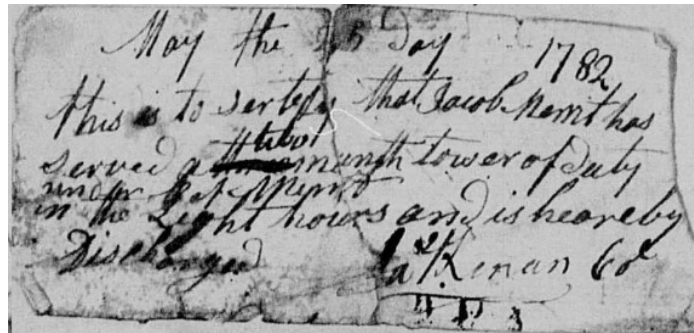 May the 25 day 1782
this is to sertefy that Jacob Merrit has
two
served a month tower of duty
under Capt Merrit
in the Light hours and is heareby
Discharged Ja Kenan Col